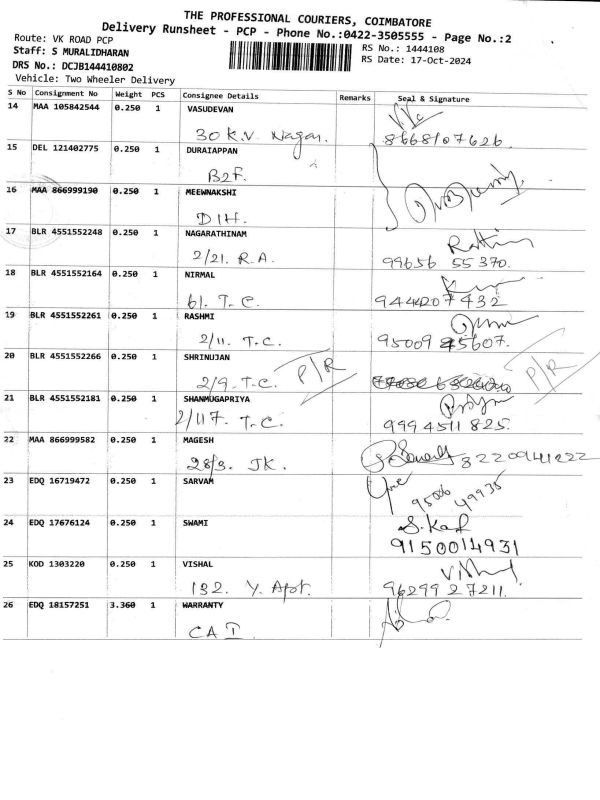 THE PROFESSIONAL COURIERS, COIMBATORE
Delivery Runsheet - PCP - Phone No.:0422-3505555 - Page No.:2
Route: VK ROAD PCP
RS No.: 1444108
Staff: S MURALIDHARAN
RS Date: 17-Oct-2024
DRS No.: DCJB144410802
Vehicle: Two Wheeler Delivery
S No Consignment No Weight PCS Consignee Details Remarks Seal & Signature
14 MAA 105842544 0.250 1 VASUDEVAN
30 K.V. Nagar. 8668107626
15 DEL 121402775 0.250 1 DURAIAPPAN
B2F.
16 MAA 866999190 0.250 1 MEEWNAKSHI
DIH.
17 BLR 4551552248 0.250 1 NAGARATHINAM
2/21. R.A. 99656 55370.
18 BLR 4551552164 0.250 1 NIRMAL
61. T.C. 9444207432
19 BLR 4551552261 0.250 1 RASHMI
2/11. T.C. 95009 25607.
20 BLR 4551552266 0.250 1 SHRINUJAN
2/9. T.C. P/R P/R
21 BLR 4551552181 0.250 1 SHANMUGAPRIYA
2/117. T.C. 9994511 825.
22 MAA 866999582 0.250 1 MAGESH
28/3. JK. 8220941222
23 EDQ 16719472 0.250 1 SARVAM
95006 49935
24 EDQ 17676124 0.250 1 SWAMI
9150014931
25 KOD 1303220 0.250 1 VISHAL
132. Y. Apt. 96299 27211.
26 EDQ 18157251 3.360 1 WARRANTY
CAI.